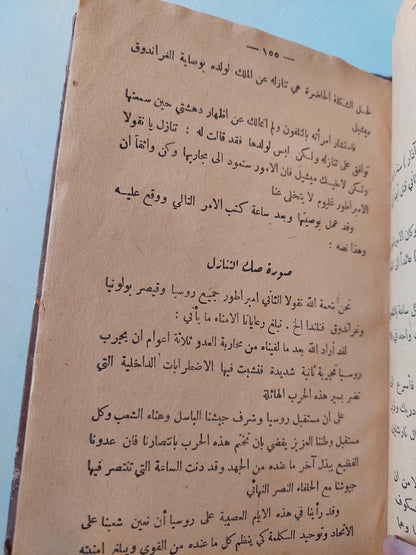 — ١٥٥ —
لحل المشكلة الحاضرة هي تنازله عن الملك لولده بوصاية الغراندوق
ميشيل
فاستشار امرأته بالتلفون ولم اتمالك عن اظهار دهشتي حين سمعتها
توافق على تنازله ولكن ليس لولدها فقد قالت له : تنازل يا نقولا
ولكن لاخيك ميشيل فان الامور ستعود الى مجاريها وكن واثقاً ان
الامبراطور غليوم لا يتخلى عنا
وقد عمل بوصيتها وبعد ساعة كتب الامر التالي ووقع عليه
وهذا نصه :
صورة صك التنازل
نحن بنعمة الله نقولا الثاني امبراطور جميع روسيا وقيصر بولونيا
وغراندوق فنلندا الخ . نبلغ رعايانا الامناء ما يأتي :
لقد أراد الله بعد ما لقيناه من محاربة العدو ثلاثة اعوام ان يجرب
روسيا تجربة ثانية شديدة فنشبت فيها الاضطرابات الداخلية التي
تضر بسير هذه الحرب الهائلة
على ان مستقبل روسيا وشرف جيشنا الباسل وهناء الشعب وكل
مستقبل وطننا العزيز يقضي بان تختم هذه الحرب بانتصارنا فان عدونا
الفظيع يبذل آخر ما عنده من الجهد وقد دنت الساعة التي تنتصر فيها
جيوشنا مع الحلفاء النصر النهائي
وقد رأينا في هذه الايام العصيبة على روسيا أن نعين شعبنا على
الاتحاد وتوحيد الكلمة كي ينظم كل ما عنده من القوى ويبلغ امنيته